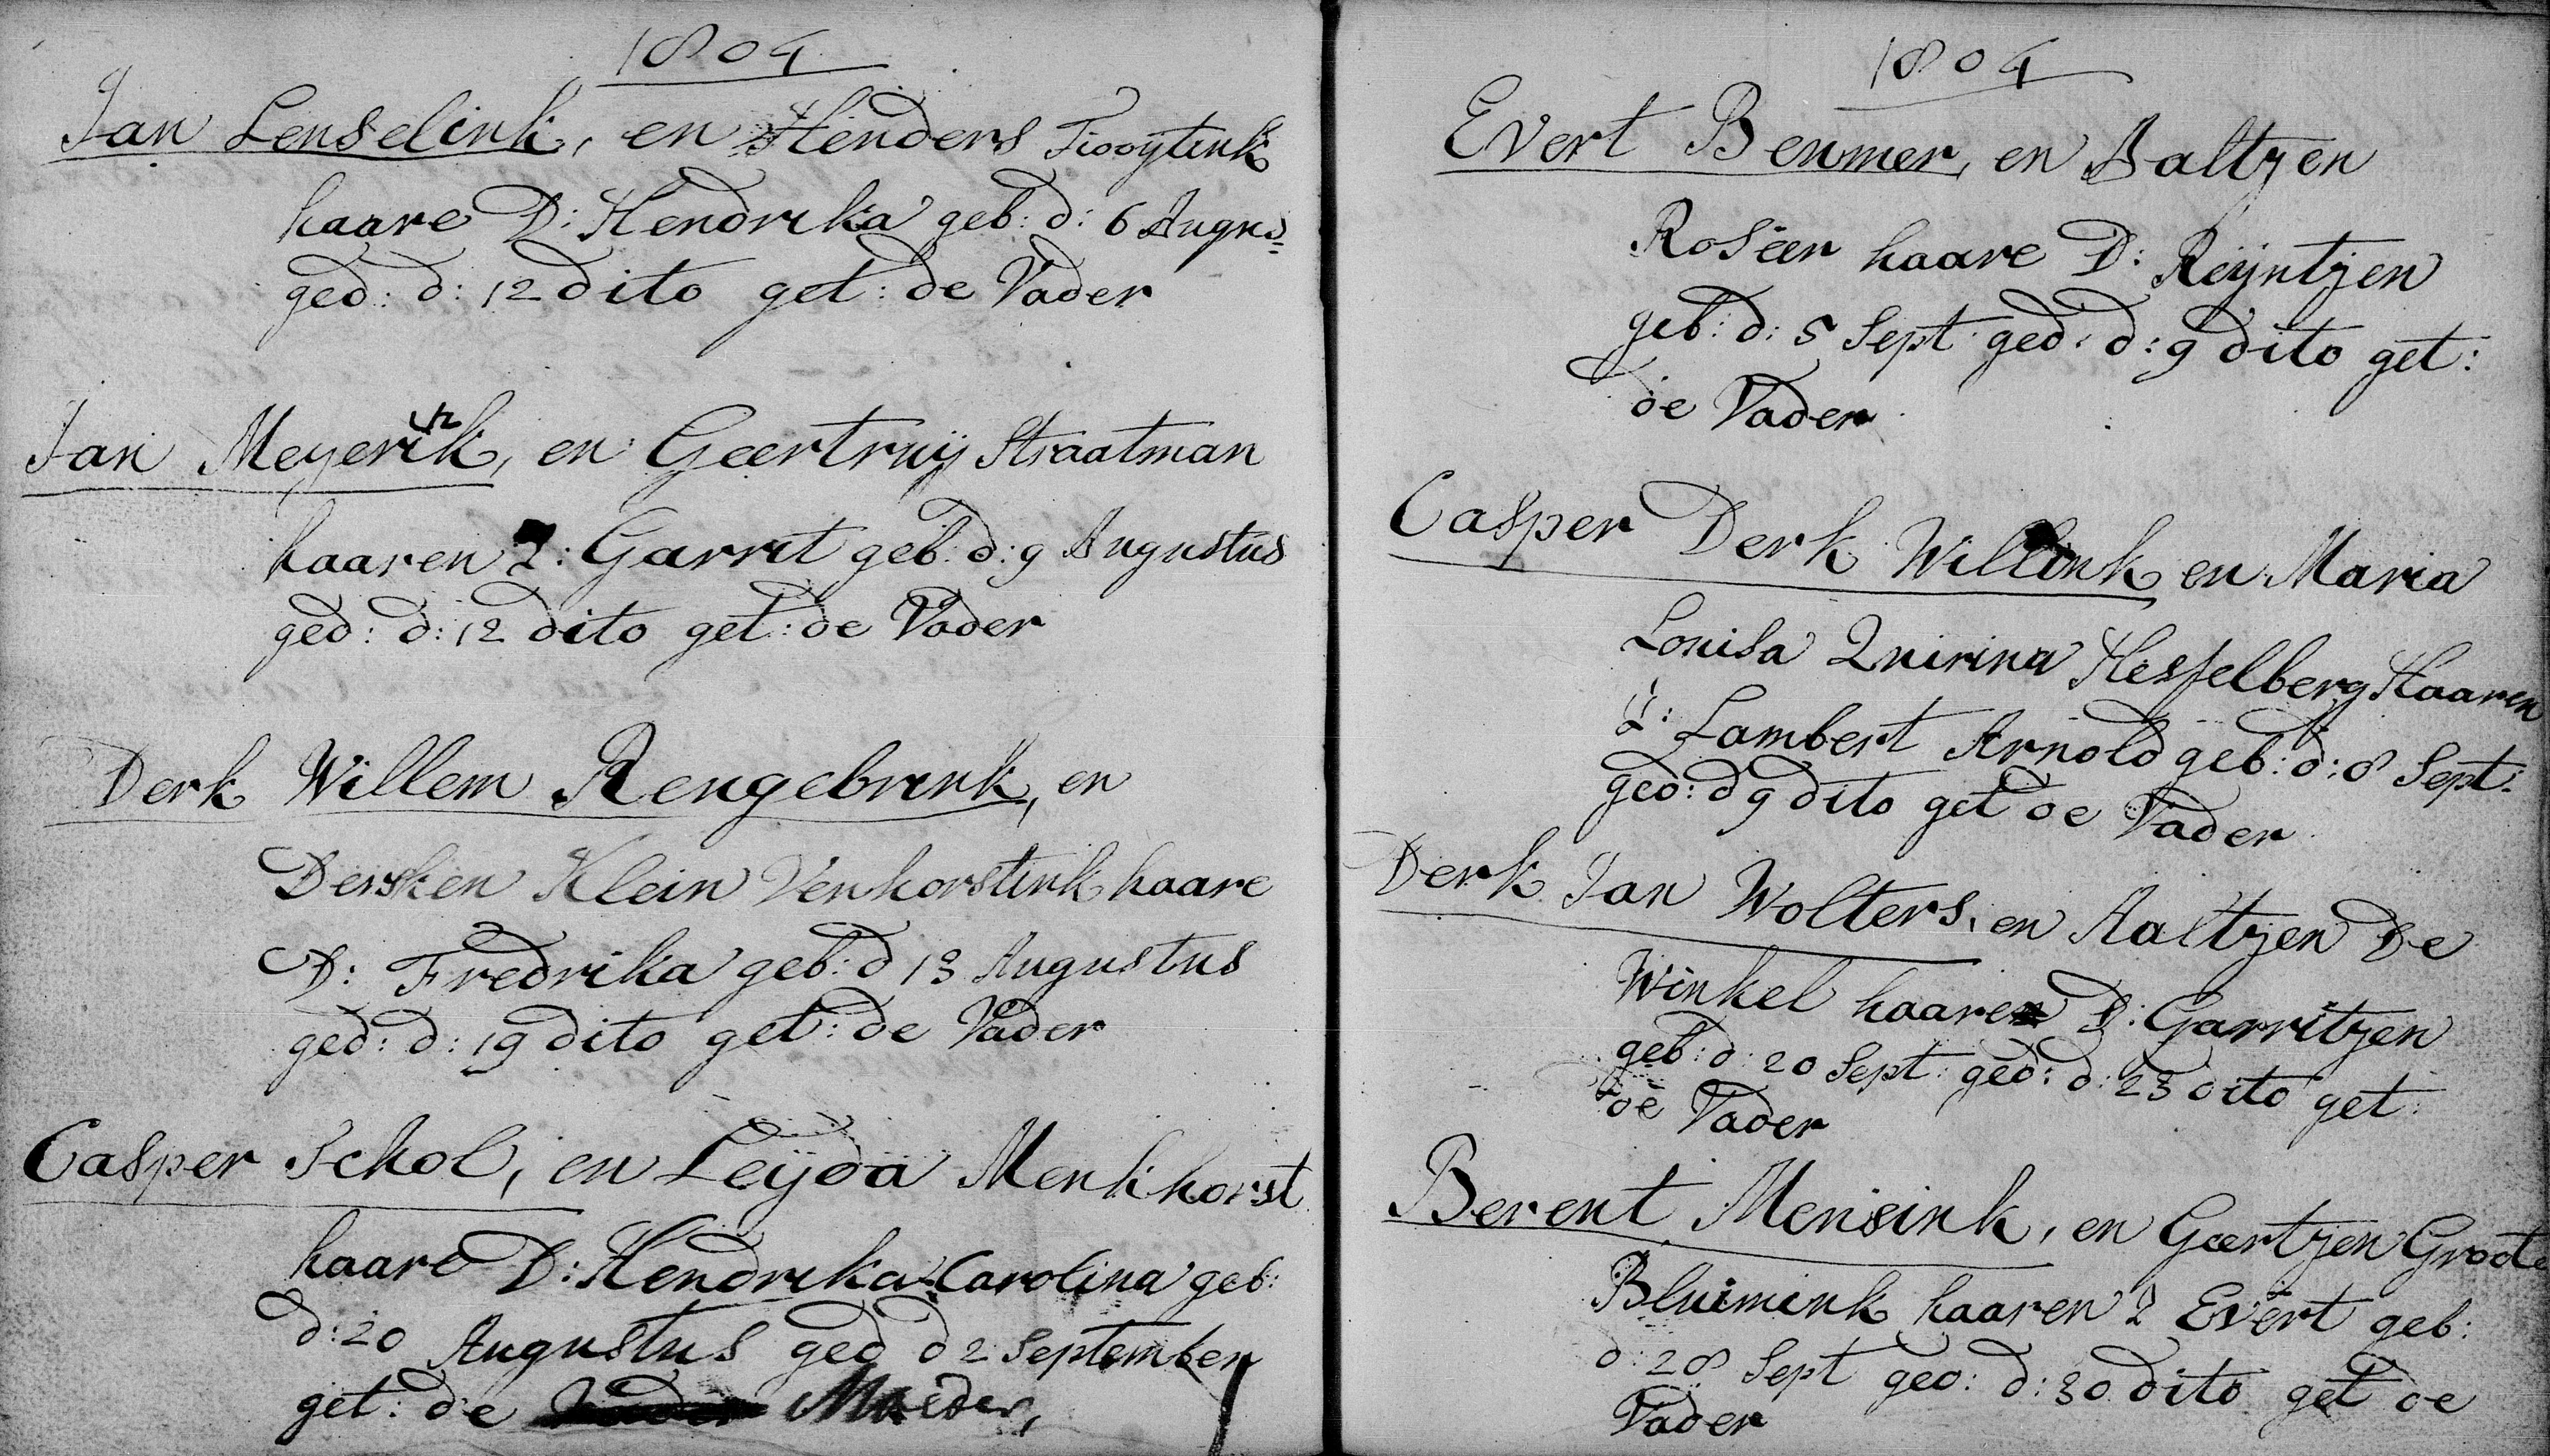 1804
Jan Lenselink, en Henders Tiooytink
haare D: Hendrika geb: d: 6 Augus=
ged: d: 12 dito get: de Vader
Jan Meyerink, en Geertruij Straatman
haaren Z: Garrit geb: d: 9 Augustus
ged: d: 12 dito get: de Vader
Derk Willem Rengebrink, en
Dersken Klein Venhorstink haare
D: Fredrika geb: d 13 Augustus
ged: d: 19 dito get: de Vader
Casper Schol, en Leyda Menkhorst
haare D: Hendrika Carolina geb:
d: 20 Augustus ged d 2 September
get: de Moeder,
1804
Evert Beumer, en Aaltjen
Roseer haare D: Reijntjen
geb: d: 5 Sept: ged: d: 9 dito get:
de Vader
Casper Derk Willink en Maria
Louisa Quirina Hesselberg Haaren
Z: Lambert Arnold geb: d: 8 Sept:
ged: d 9 dito get de Vader
Derk Jan Wolters, en Aaltjen De
Winkel haare D: Garritjen
geb: d: 20 Sept: ged: d: 23 dito get:
de Vader
Berent Mensink, en Geertjen Groote
Bluimink haaren Z Evert geb:
d: 28 Sept ged: d: 30 dito get de
Vader